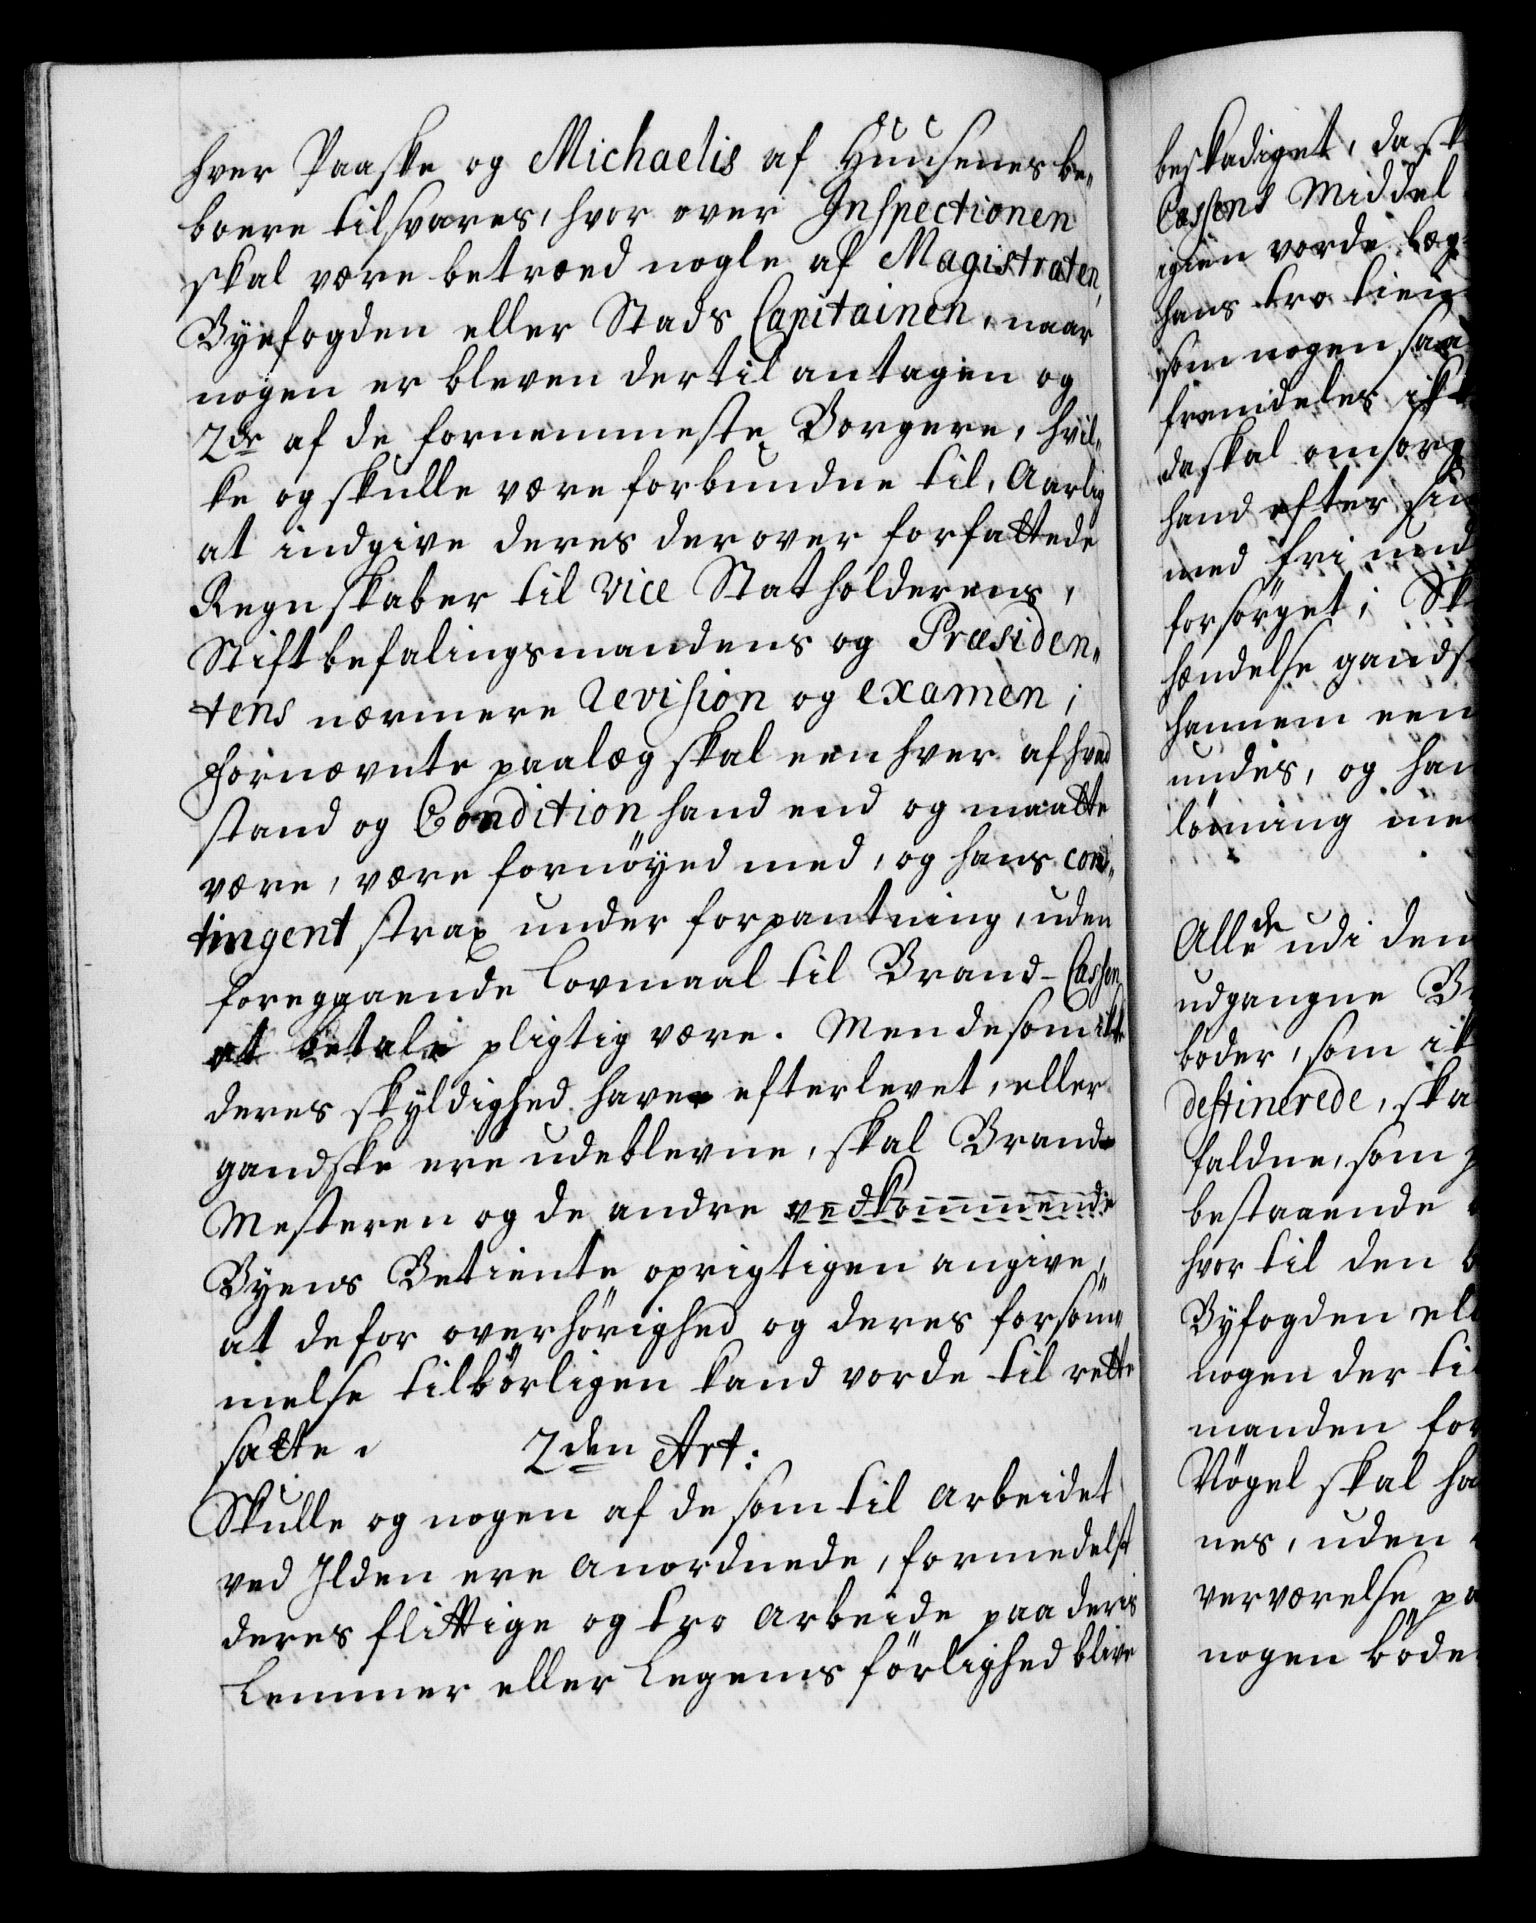 hver Paaske og Michaelis af Huusenes be„
boere tilsvares, hvor over Inspectionen
skal være betroed nogle af Magistraten,
Byefogden eller Stads Capitainen, naar
nogen er bleven dertil antagen og
2de af de fornemmeste Borgere, hvil„
ke og skulle være forbundne til, Aarlig
at indgive deres derover forfattede
Regnskaber til Vice Statholderens,
Stiftbefalingsmandens og Præsiden„
tens nærmere Revision og examen;
Fornævnte paalæg skal een hver af hvad
stand og Condition hand end og maatte
være, være fornöyed med, og hans con„
tingent strax under forpantning, uden
foregaaende Lovmaal til Brand-Cassen
at betale pligtig være. Men de som ikke
deres skyldighed have efterlevet, eller
gandske ere udeblevne, skal Brand-
Mesteren og de andre vedkommende
Byens Betiente oprigtigen angive,
at de for overhörighed og deres forsöm„
melse tilbörligen kand vorde til rette
satte. 2den Art:
Skulle og nogen af de som til Arbeidet
ved Ilden ere Anordnede, formedelst
deres flittige og tro Arbeide paa deris
Lemmer eller Legems förlighed blive
beskadiget, da sk
Cassens Middel
igien vorde læg
hans tro tien
som nogen saa
fremdeles ik
da skal omsorg
hand efter
med fri und
forsörget; Sk
hændelse gands
hannem een
undes, og han
lönning me
Alle de udi den
udgangne Br
böder, som ik
destinerede, ska
faldne, som
bestaaende
hvor til den
Byfogden ell
nogen der til
manden for
Nögel skal ha
nes, uden
verværelse pa
nogen böde